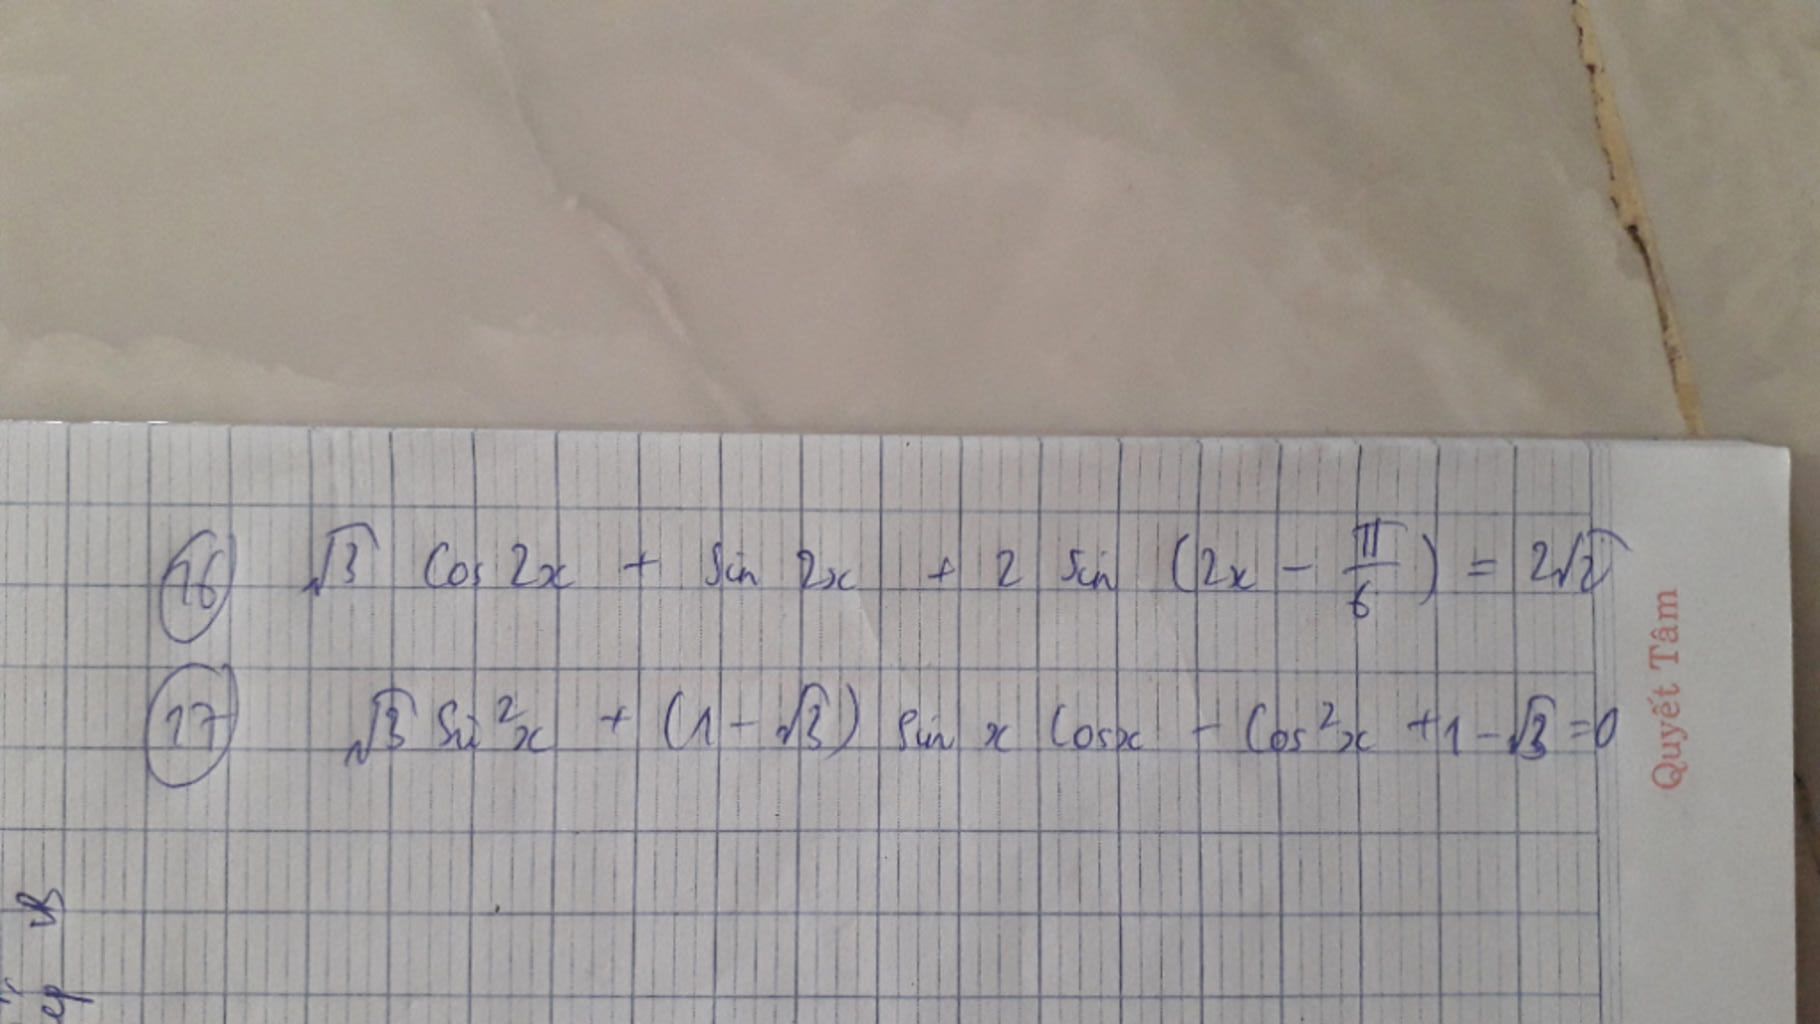 16 √3 Cos 2x + Sin 2x + 2 Sin (2x - π/6) = 2√2
17 √3 Sin²x + (1 - √3) Sin x Cosx - Cos²x + 1 - √3 = 0
Quyết Tâm